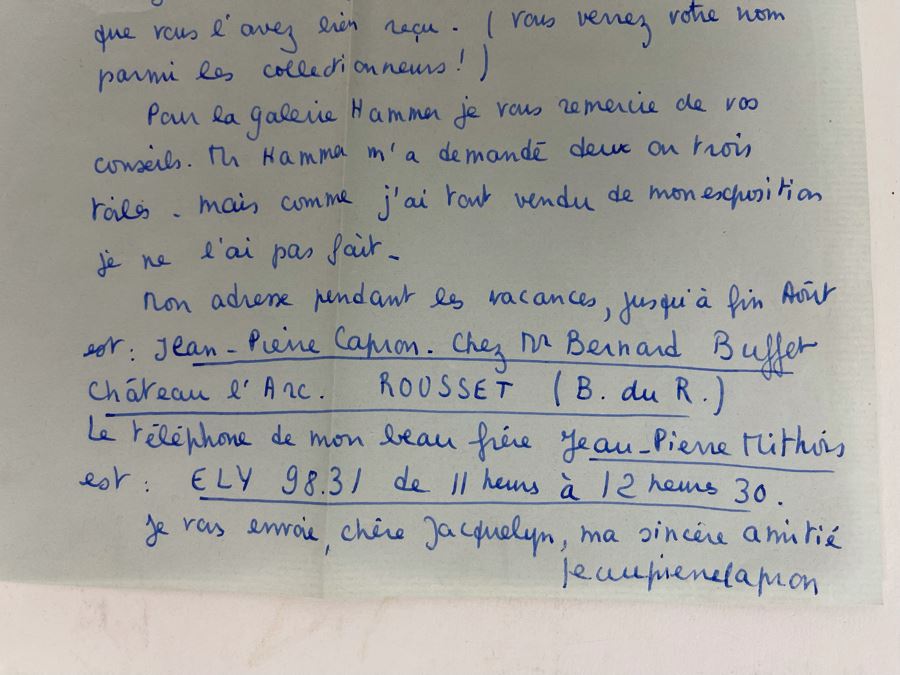 que vous l'avez bien reçu. (vous verrez votre nom
parmi les collectionneurs!)
Pour la galerie Hammer je vous remercie de vos
conseils. Mr Hammer m'a demandé deux ou trois
toiles. mais comme j'ai tout vendu de mon exposition
je ne l'ai pas fait_
Mon adresse pendant les vacances, jusqu'à fin Août
est: Jean-Pierre Capron. Chez Mr Bernard Buffet
Château l'Arc. ROUSSET (B. du R.)
Le téléphone de mon beau frère Jean-Pierre Mithois
est: ELY 98.31 de 11 heures à 12 heures 30.
Je vous envoie, chère Jacquelyn, ma sincère amitié
jeanpierrecapron